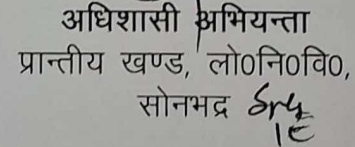 अधिशासी अभियन्ता
प्रान्तीय खण्ड, लो०नि०वि०,
सोनभद्र